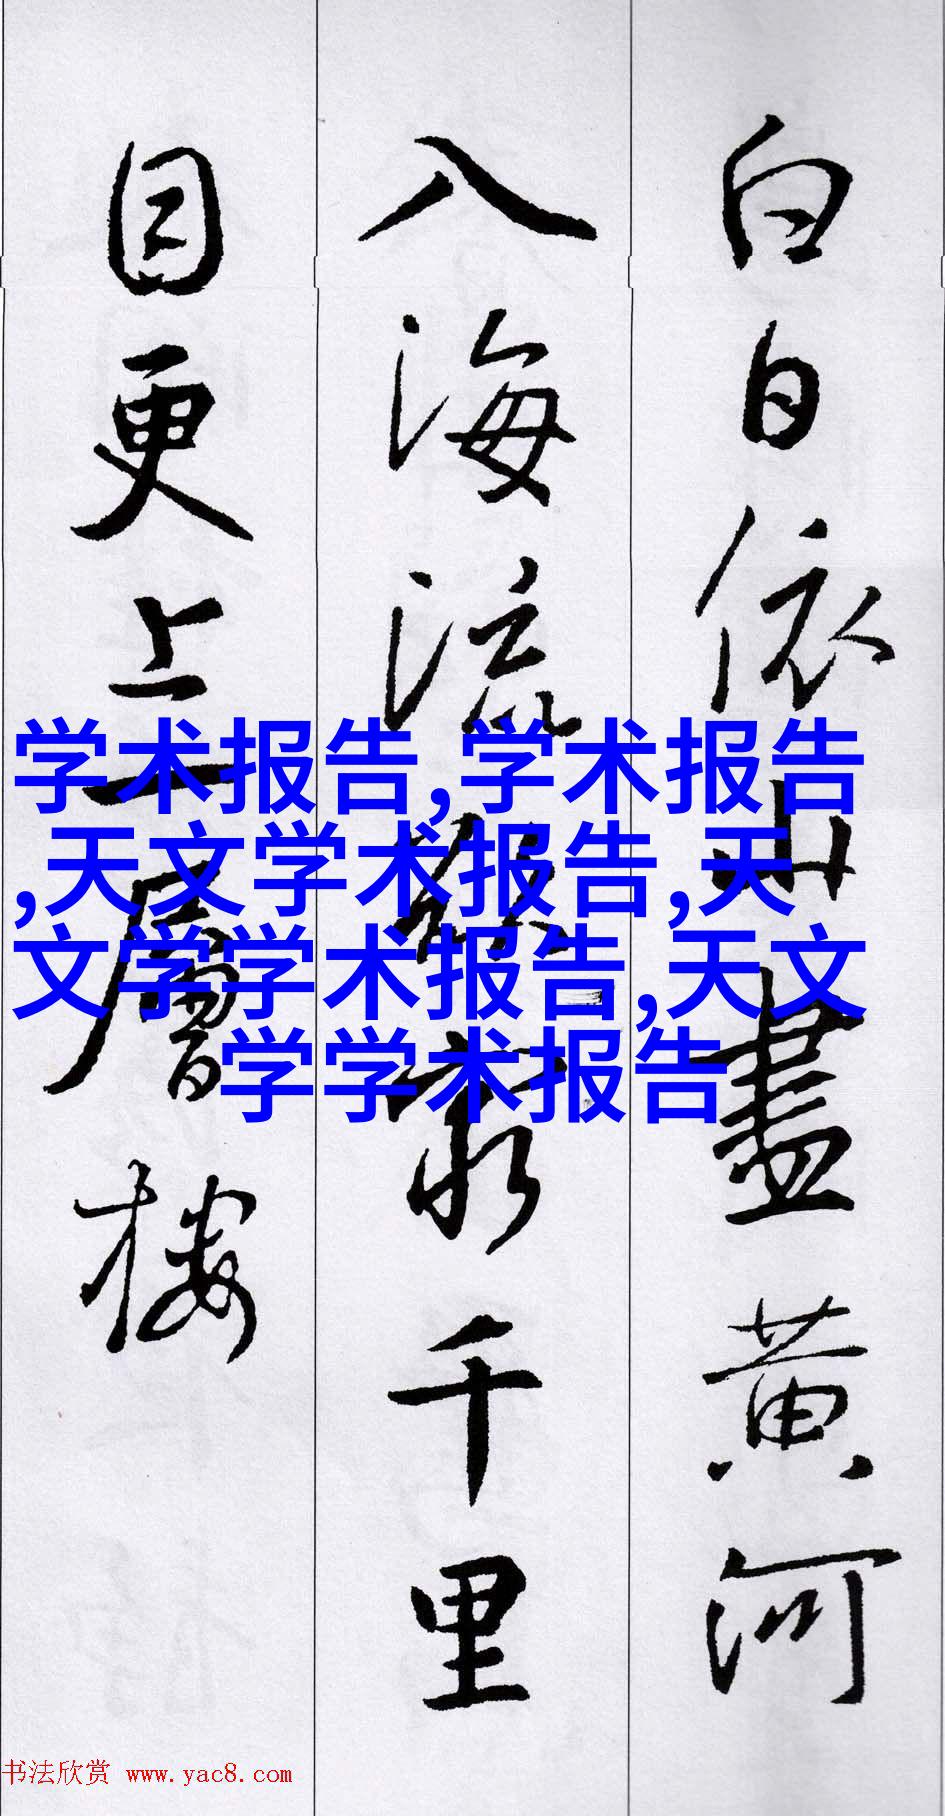 白日依山盡黄河
入海流欲窮千里
目更上一層樓
学术报告,学术报告
,天文学术报告,天
文学学术报告,天文
学学术报告
书法欣赏 www.yac8.com